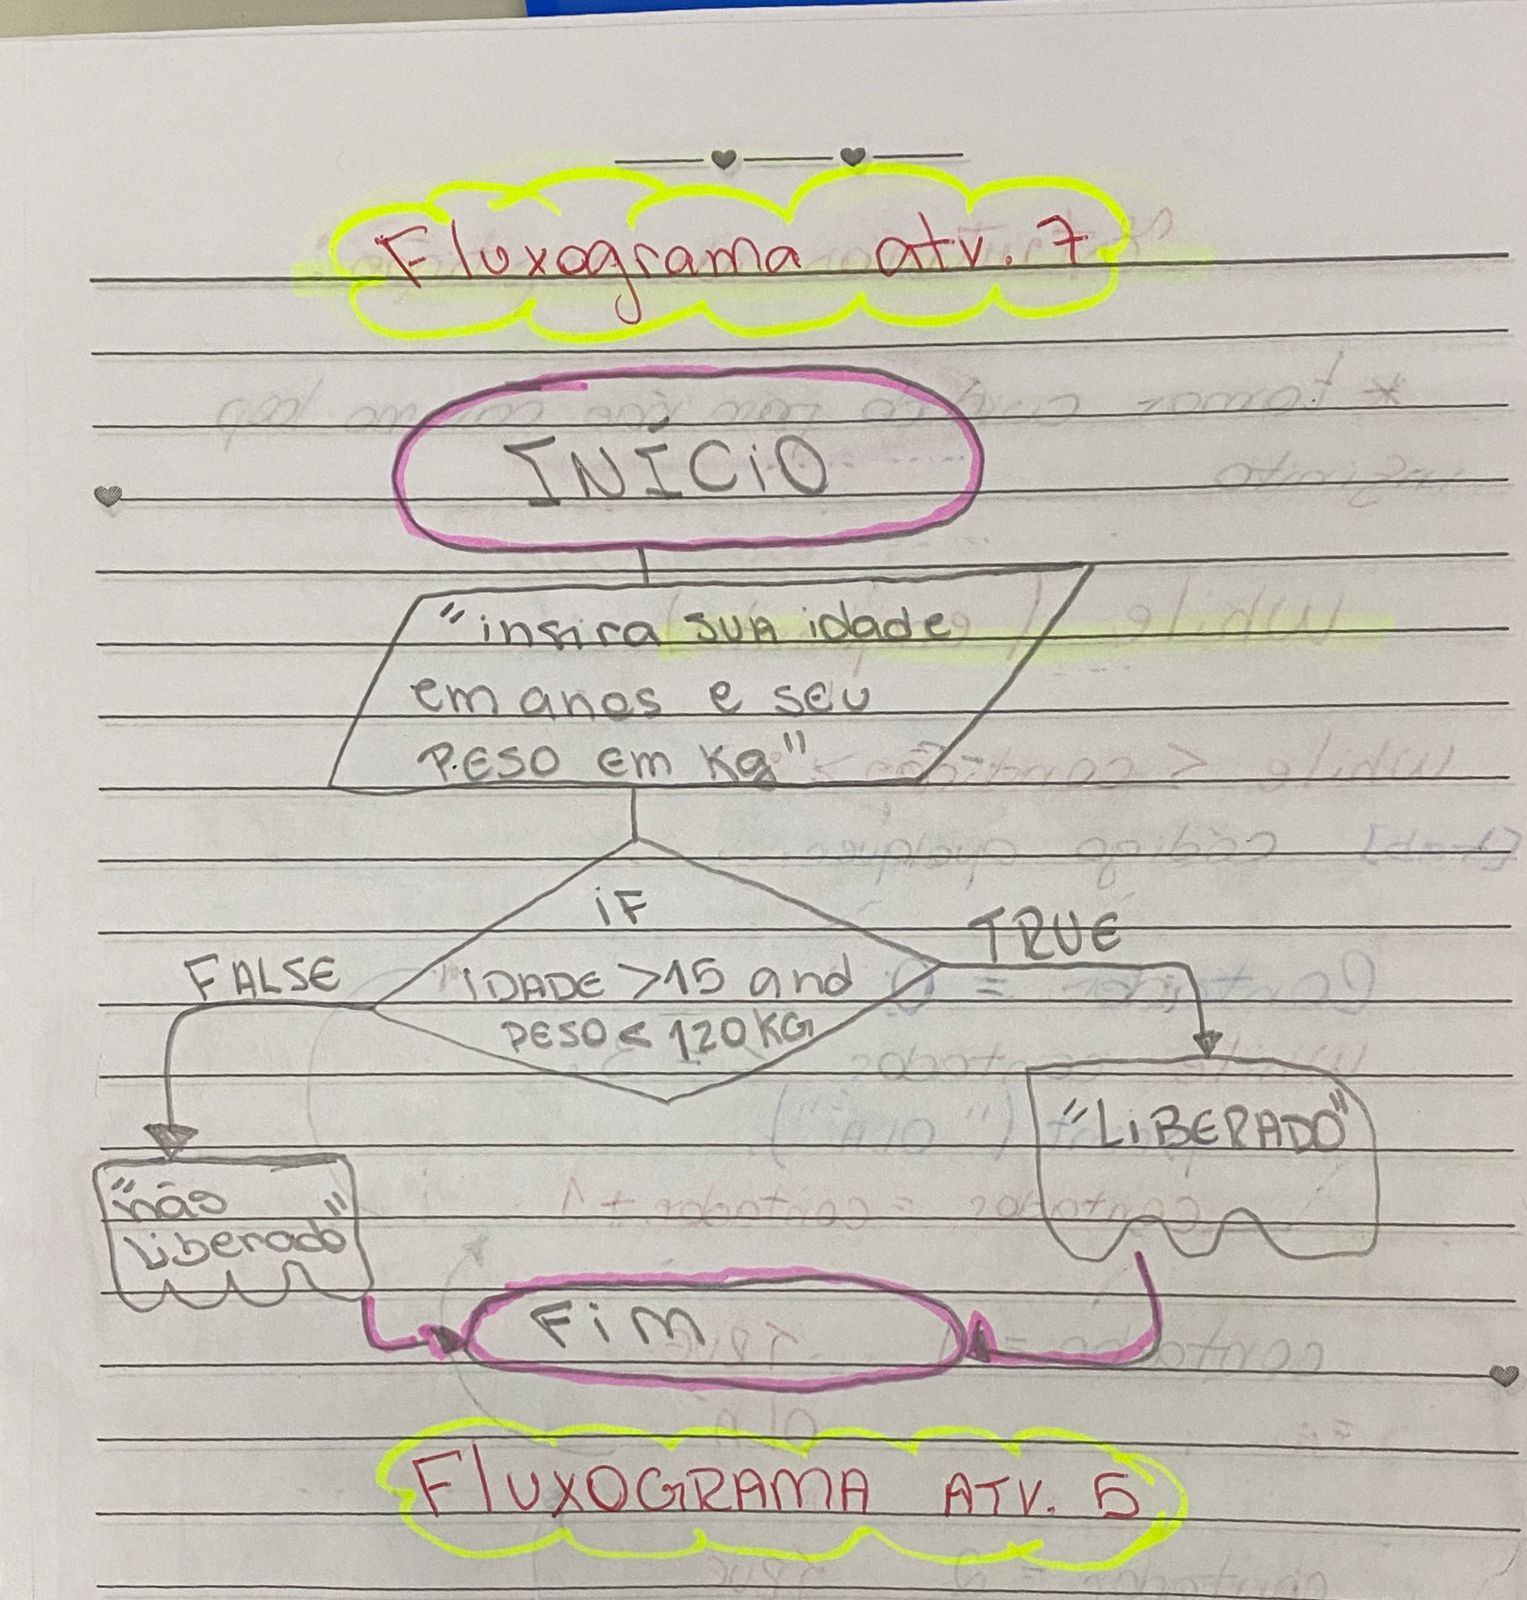 Fluxograma atv. 7
INÍCiO
"insira SUA idade
em anos e seu
PESO Em Kg"
iF
IDADE >15 and
PESO < 120KG
FALSE
TRUE
"não
liberado"
"LiBERADO"
FiM
FLUXOGRAMA ATV. 5